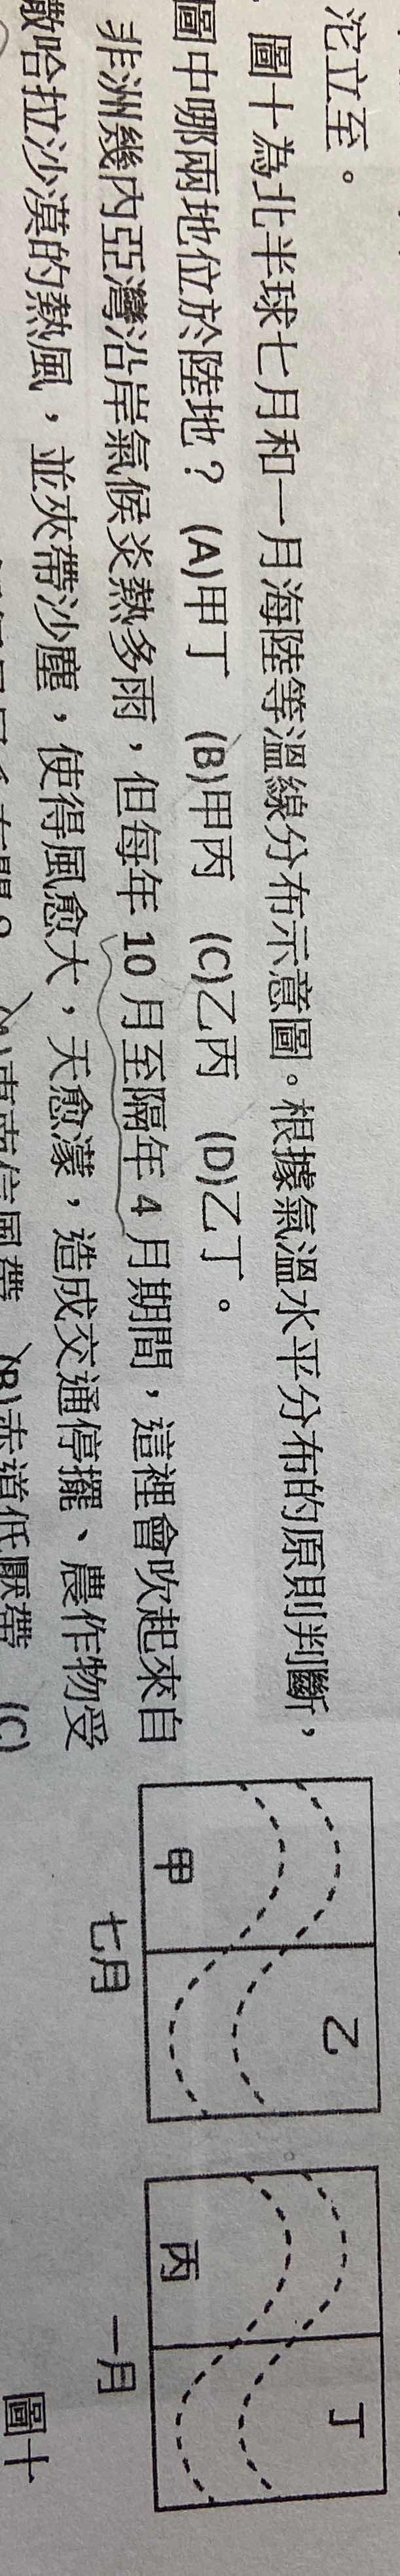 沱立至。
圖十為北半球七月和一月海陸等溫線分布示意圖。根據氣溫水平分布的原則判斷，
圖中哪兩地位於陸地？ (A)甲丁 (B)甲丙 (C)乙丙 (D)乙丁。
非洲幾內亞灣沿岸氣候炎熱多雨，但每年 10 月至隔年 4 月期間，這裡會吹起來自
撒哈拉沙漠的熱風，並夾帶沙塵，使得風愈大，天愈濛，造成交通停擺、農作物受
(B)赤道低壓帶 (C)
甲 乙
七月
丙 丁
一月
圖十